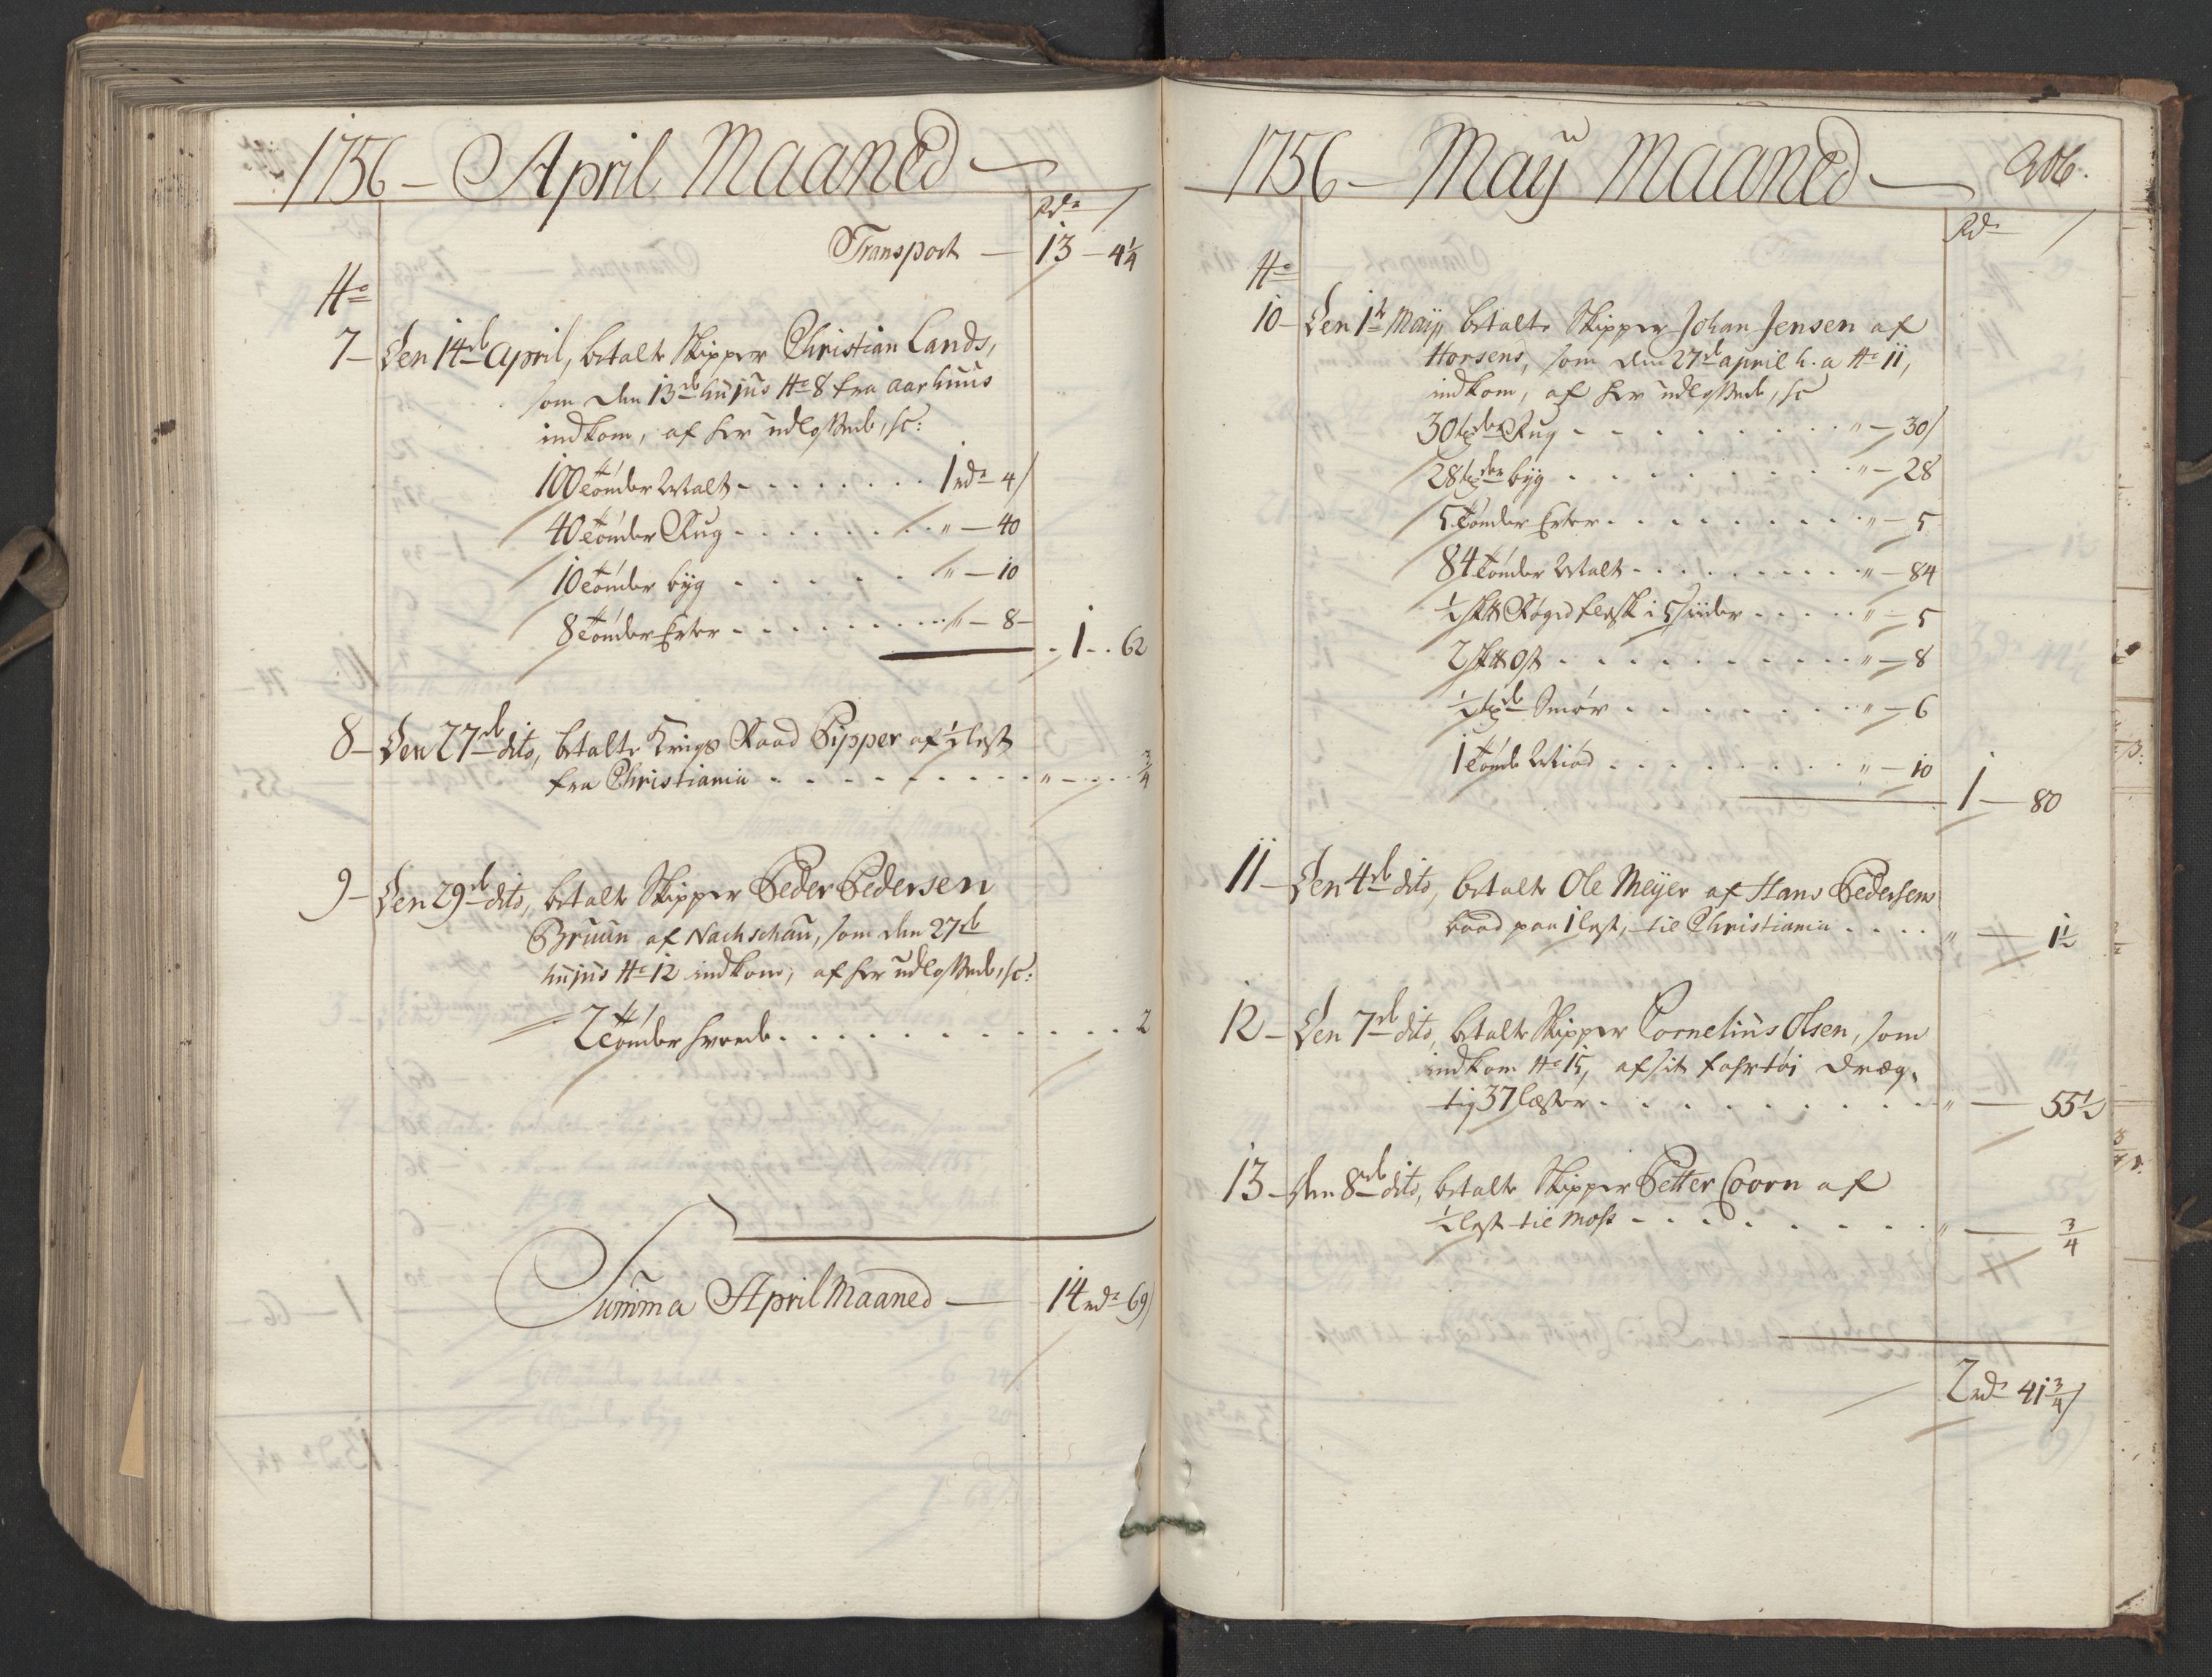 1756 - April Maaned
Rdr /
Transport - 13 - 4¼
No
7 - Den 14de April, betalte Skipper Christian Lands,
som den 13de hujus No 8 fra Aarhuus
indkom, af her udlossede, sc:
100 Tønder Malt - - - 1 rdr 4/
40 Tønder Rug - - - " - 40
10 Tønder byg - - - " - 10
8 Tønder Erter - - - " - 8 -
1 - 62
8 - Den 27de dito, betalte Krigs Raad Pipper af ½ lest
fra Christiania - - - " - ¾
9 - Den 29de dito, betalte Skipper Peder Pedersen
Bruun af Nachschau, som den 27de
hujus No 12 indkom, af her udlossede, sc:
2 Tønder hvede - - - 2
Summa April Maaned - 14 rdr 69/
1756 - Maÿ Maaned - 206.
Rdr /
No
10 - Den 1te Maÿ betalte Skipper Johan Jensen af
Horsens, som den 27de april h. a No 11,
indkom, af her udlossede, sc
30 tder Rug - - - " - 30/
28 tder byg - - - " - 28
5 Tønder Erter - - - " - 5
84 Tønder Malt - - - " - 84
½ sk℔ Røget flesk i 5 siider - - - " - 5
2 sk℔ Ost - - - " - 8
½ tde Smør - - - " - 6
1 Tønde Miød - - - " - 10
1 - 80
11 - Den 4de dito, betalte Ole Meÿer af Hans Pedersens
baad paa 1 lest, til Christiania - - - " - 1½
12 - Den 7de dito, betalte Skipper Cornelius Olsen, som
indkom No 15, af sit fahrtøi dræg-
tig 37 læster - - - " - 55½
13 - den 8de dito, betalte Skipper Petter Coorn af
½ lest til Moss - - - " - ¾
2 rdr 41¾/